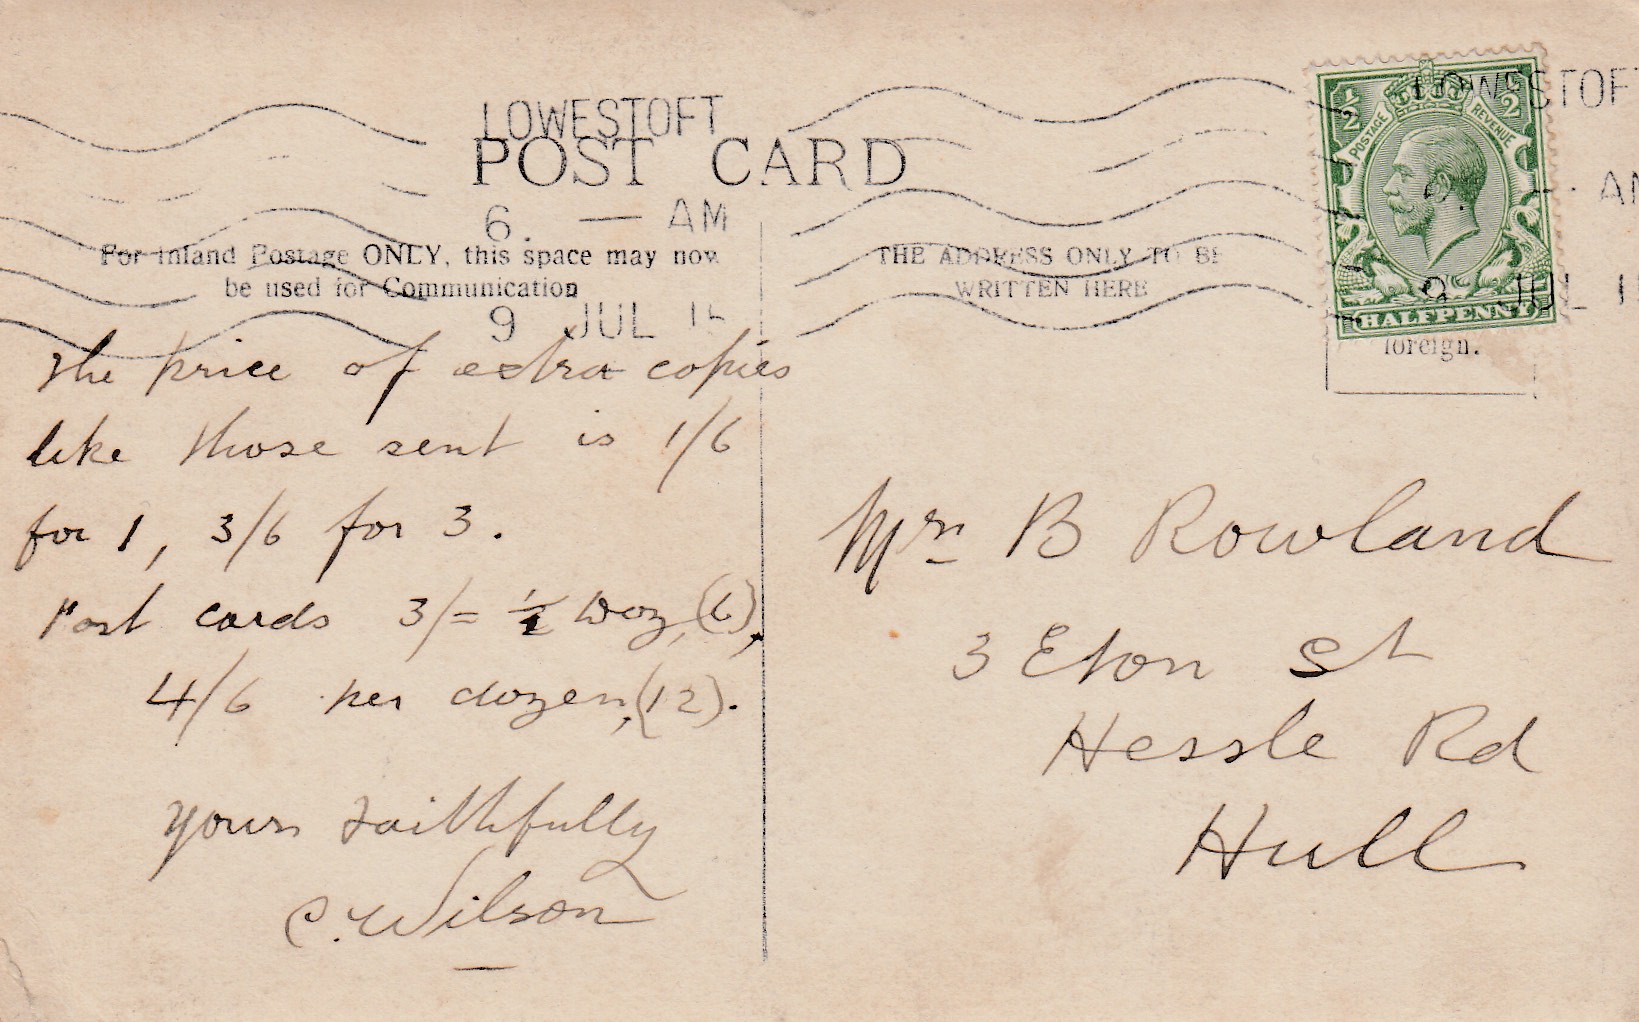 LOWESTOFT
POST CARD
6. — AM
9 JUL
For Inland Postage ONLY, this space may now
be used for Communication
THE ADDRESS ONLY TO BE
WRITTEN HERE
LOWESTOF
9 JUL
½ ½
POSTAGE REVENUE
HALFPENNY
foreign.
The price of extra copies
like those sent is 1/6
for 1, 3/6 for 3.
Post cards 3/= ½ Doz, (6),
4/6 per dozen, (12).
Yours faithfully
C. Wilson
Mrs B Rowland
3 Eton St
Hessle Rd
Hull